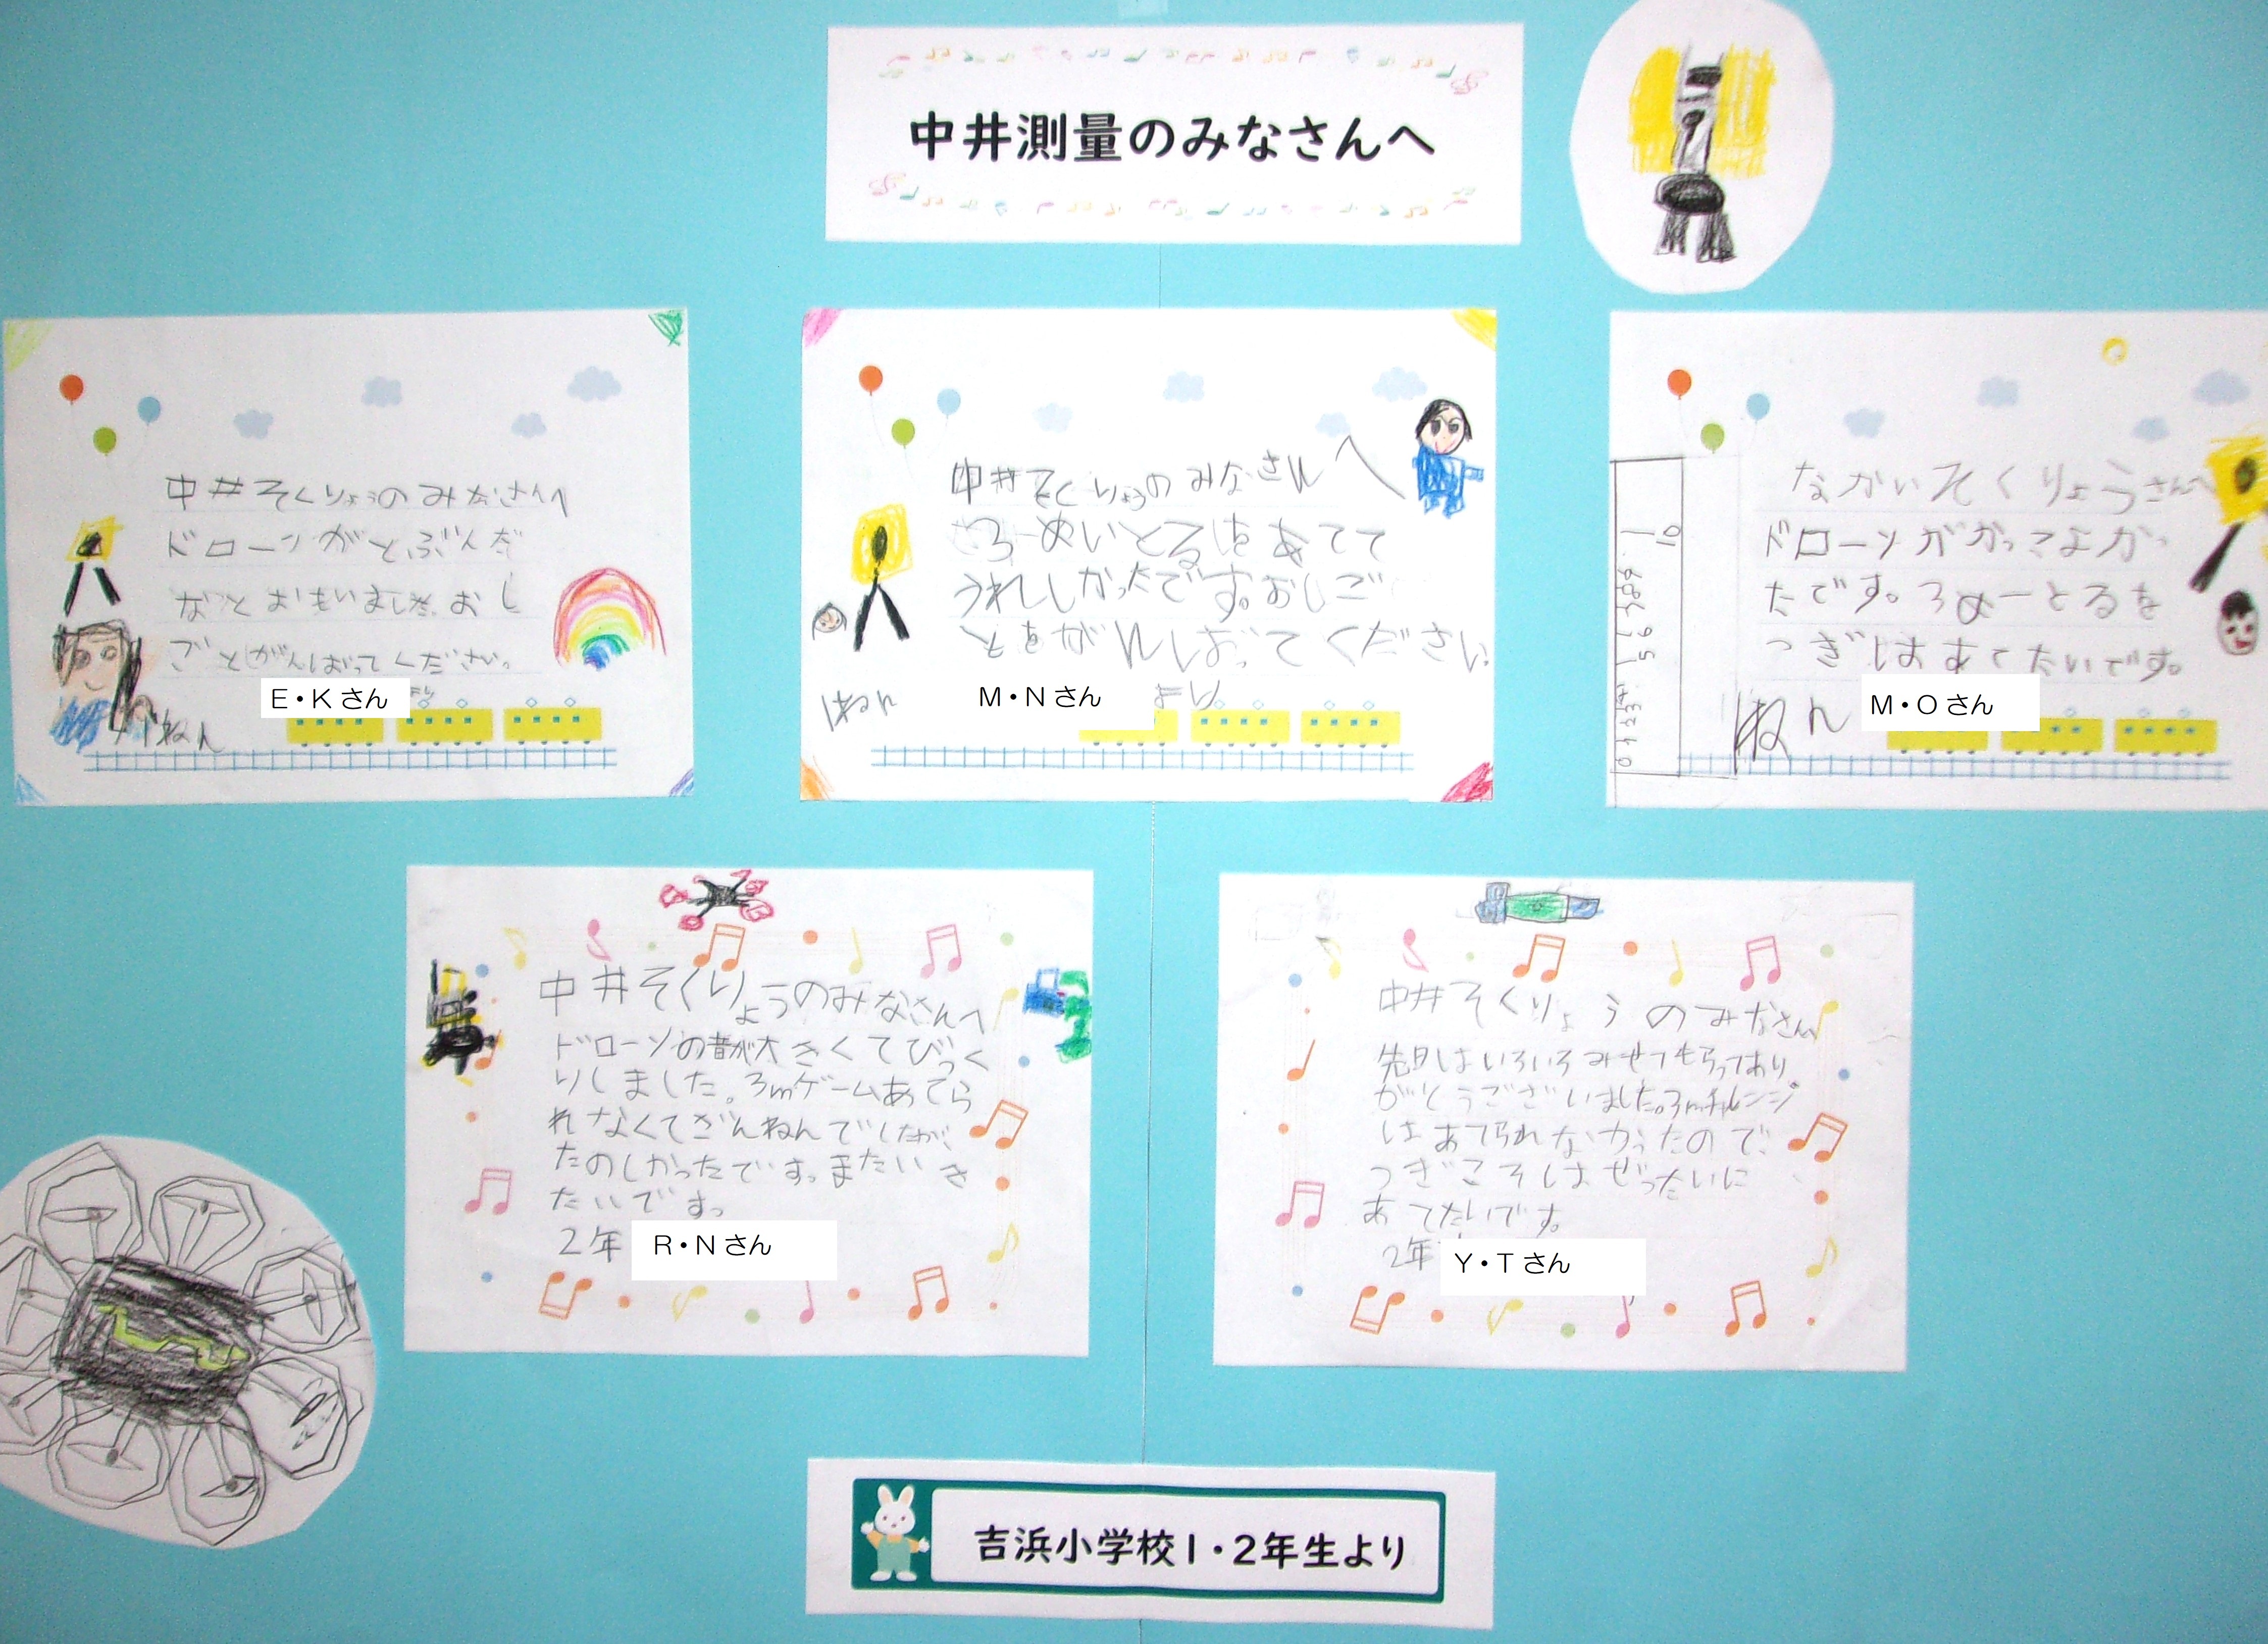 中井測量のみなさんへ
中井そくりょうのみなさんへ
ドローンがとぶんだ
なとおもいました。おし
ごとがんばってください。
1ねん
E・Kさん
より
中井そくりょうのみなさんへ
3ーめいとるをあてて
うれしかったです。おしご
とをがんばってください
1ねん
M・Nさん
より
なかいそくりょうさんへ
ドローンがかっこよかっ
たです。3めーとるを
つぎはあてたいです。
1ねん
M・Oさん
中井そくりょうのみなさんへ
ドローンの音が大きくてびっく
りしました。3mゲームあてら
れなくてざんねんでしたが、
たのしかったです。またいき
たいです。
2年
R・Nさん
中井そくりょうのみなさんへ
先日はいろいろみせてもらってあり
がとうございました。3mチャレンジ
はあてられなかったので、
つぎこそはぜったいに
あてたいです。
2年
Y・Tさん
吉浜小学校1・2年生より